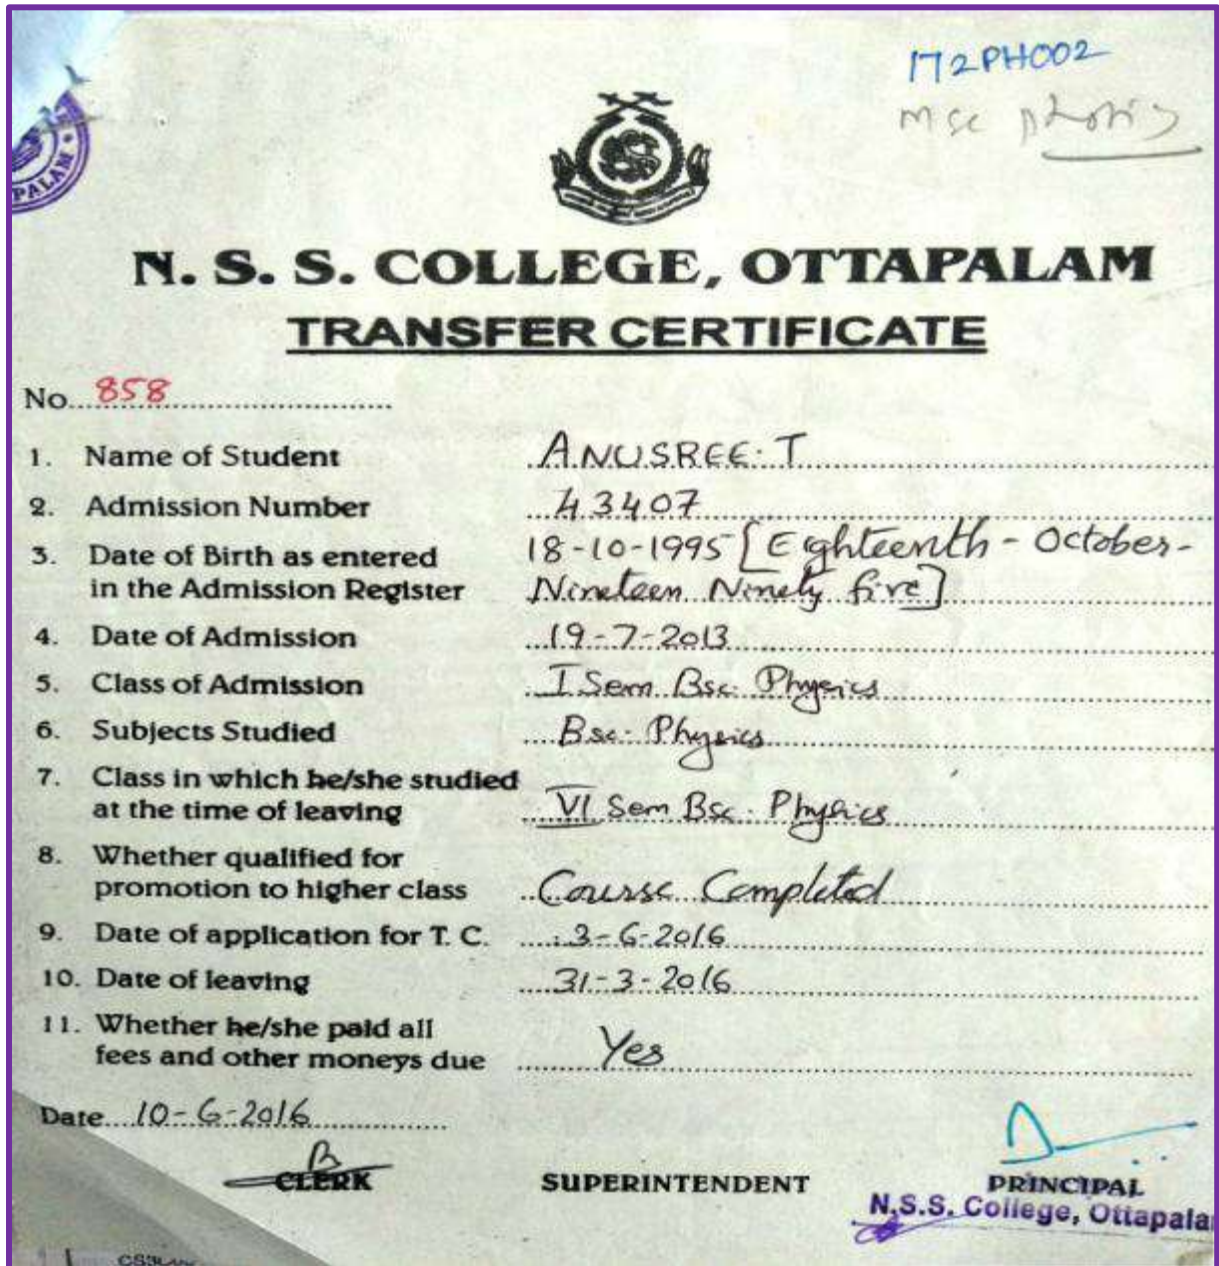 172PH002
MSc
N. S. S. COLLEGE, OTTAPALAM
TRANSFER CERTIFICATE
No. 858
1. Name of Student ANUSREE. T
2. Admission Number 43407
3. Date of Birth as entered in the Admission Register 18-10-1995 [Eighteenth - October - Nineteen Ninety five]
4. Date of Admission 19-7-2013
5. Class of Admission I Sem Bsc. Physics
6. Subjects Studied Bsc. Physics
7. Class in which he/she studied at the time of leaving VI Sem Bsc. Physics
8. Whether qualified for promotion to higher class Course Completed
9. Date of application for T. C. 3-6-2016
10. Date of leaving 31-3-2016
11. Whether he/she paid all fees and other moneys due Yes
Date 10-6-2016
CLERK SUPERINTENDENT PRINCIPAL
N.S.S. College, Ottapala